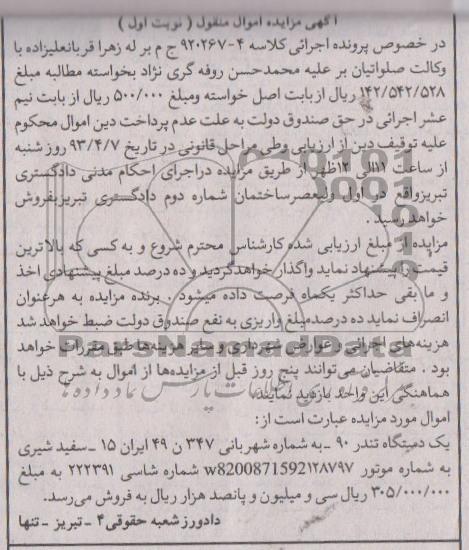 آگهی مزایده اموال منقول ( نوبت اول )
در خصوص پرونده اجرائی کلاسه ۴-۹۲۰۲۶۷ ج م بر له زهرا قربانعلیزاده با
وکالت صلواتیان بر علیه محمدحسن روفه گری نژاد بخواسته مطالبه مبلغ
۱۴۲/۵۴۲/۵۲۸ ریال از بابت اصل خواسته ومبلغ ۵۰۰/۰۰۰ ریال از بابت نیم
عشر اجرائی در حق صندوق دولت به علت عدم پرداخت دین اموال محکوم
علیه توقیف دین از ارزیابی وطی مراحل قانونی در تاریخ ۹۳/۴/۷ روز شنبه
از ساعت ۱۱الی ۱۲ظهر از طریق مزایده دراجرای احکام مدنی دادگستری
تبریزواقع در اول ولیعصرساختمان شماره دوم دادگستری تبریزبفروش
خواهدرسید .
مزایده از مبلغ ارزیابی شده کارشناس محترم شروع و به کسی که بالاترین
قیمت را پیشنهاد نماید واگذار خواهدگردید و ده درصد مبلغ پیشنهادی اخذ
و ما بقی حداکثر یکماه فرصت داده میشود . برنده مزایده به هرعنوان
انصراف نماید ده درصدمبلغ واریزی به نفع صندوق دولت ضبط خواهد شد
هزینه‌های اجرائی و عوارض شهرداری و سایر هزینه‌ها طبق مقررات خواهد
بود . متقاضیان می‌توانند پنج روز قبل از مزایده‌ها از اموال به شرح ذیل با
هماهنگی این واحد بازدید نمایند
اموال مورد مزایده عبارت است از:
یک دستگاه تندر ۹۰ ـ به شماره شهربانی ۳۴۷ ن ۴۹ ایران ۱۵ ـ سفید شیری
به شماره موتور w8200871592۱۲۸۷۹۷ شماره شاسی ۲۲۲۳۹۱ به مبلغ
۳۰۵/۰۰۰/۰۰۰ ریال سی و میلیون و پانصد هزار ریال به فروش می‌رسد.
دادورز شعبه حقوقی۴ - تبریز - تنها
ParsNamadData